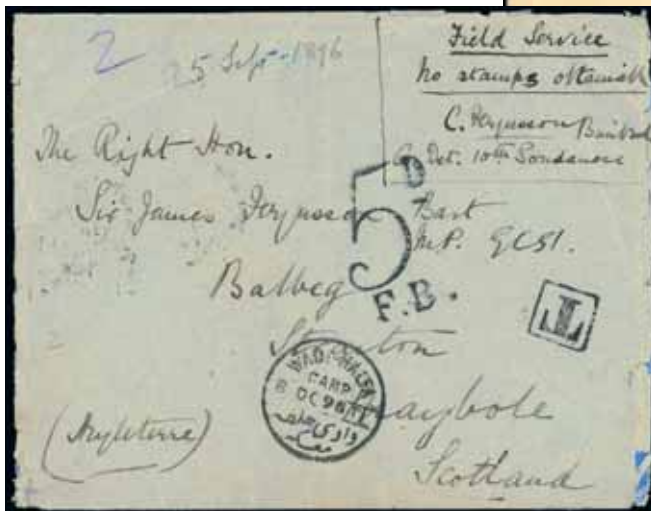 2
25 Sept - 1896
Field Service
No stamps obtainable
C. Fergusson Bimbashi
Det. 10th Soudanese
The Right Hon.
Sir James Fergusson Bart
M.P. GCSI.
Balbeg
Straiton
Maybole
Scotland
(Angleterre)
5D
F.B.
T
WADI-HALFA
CAMP
8 OC 96
وادي حلفه
معسكر